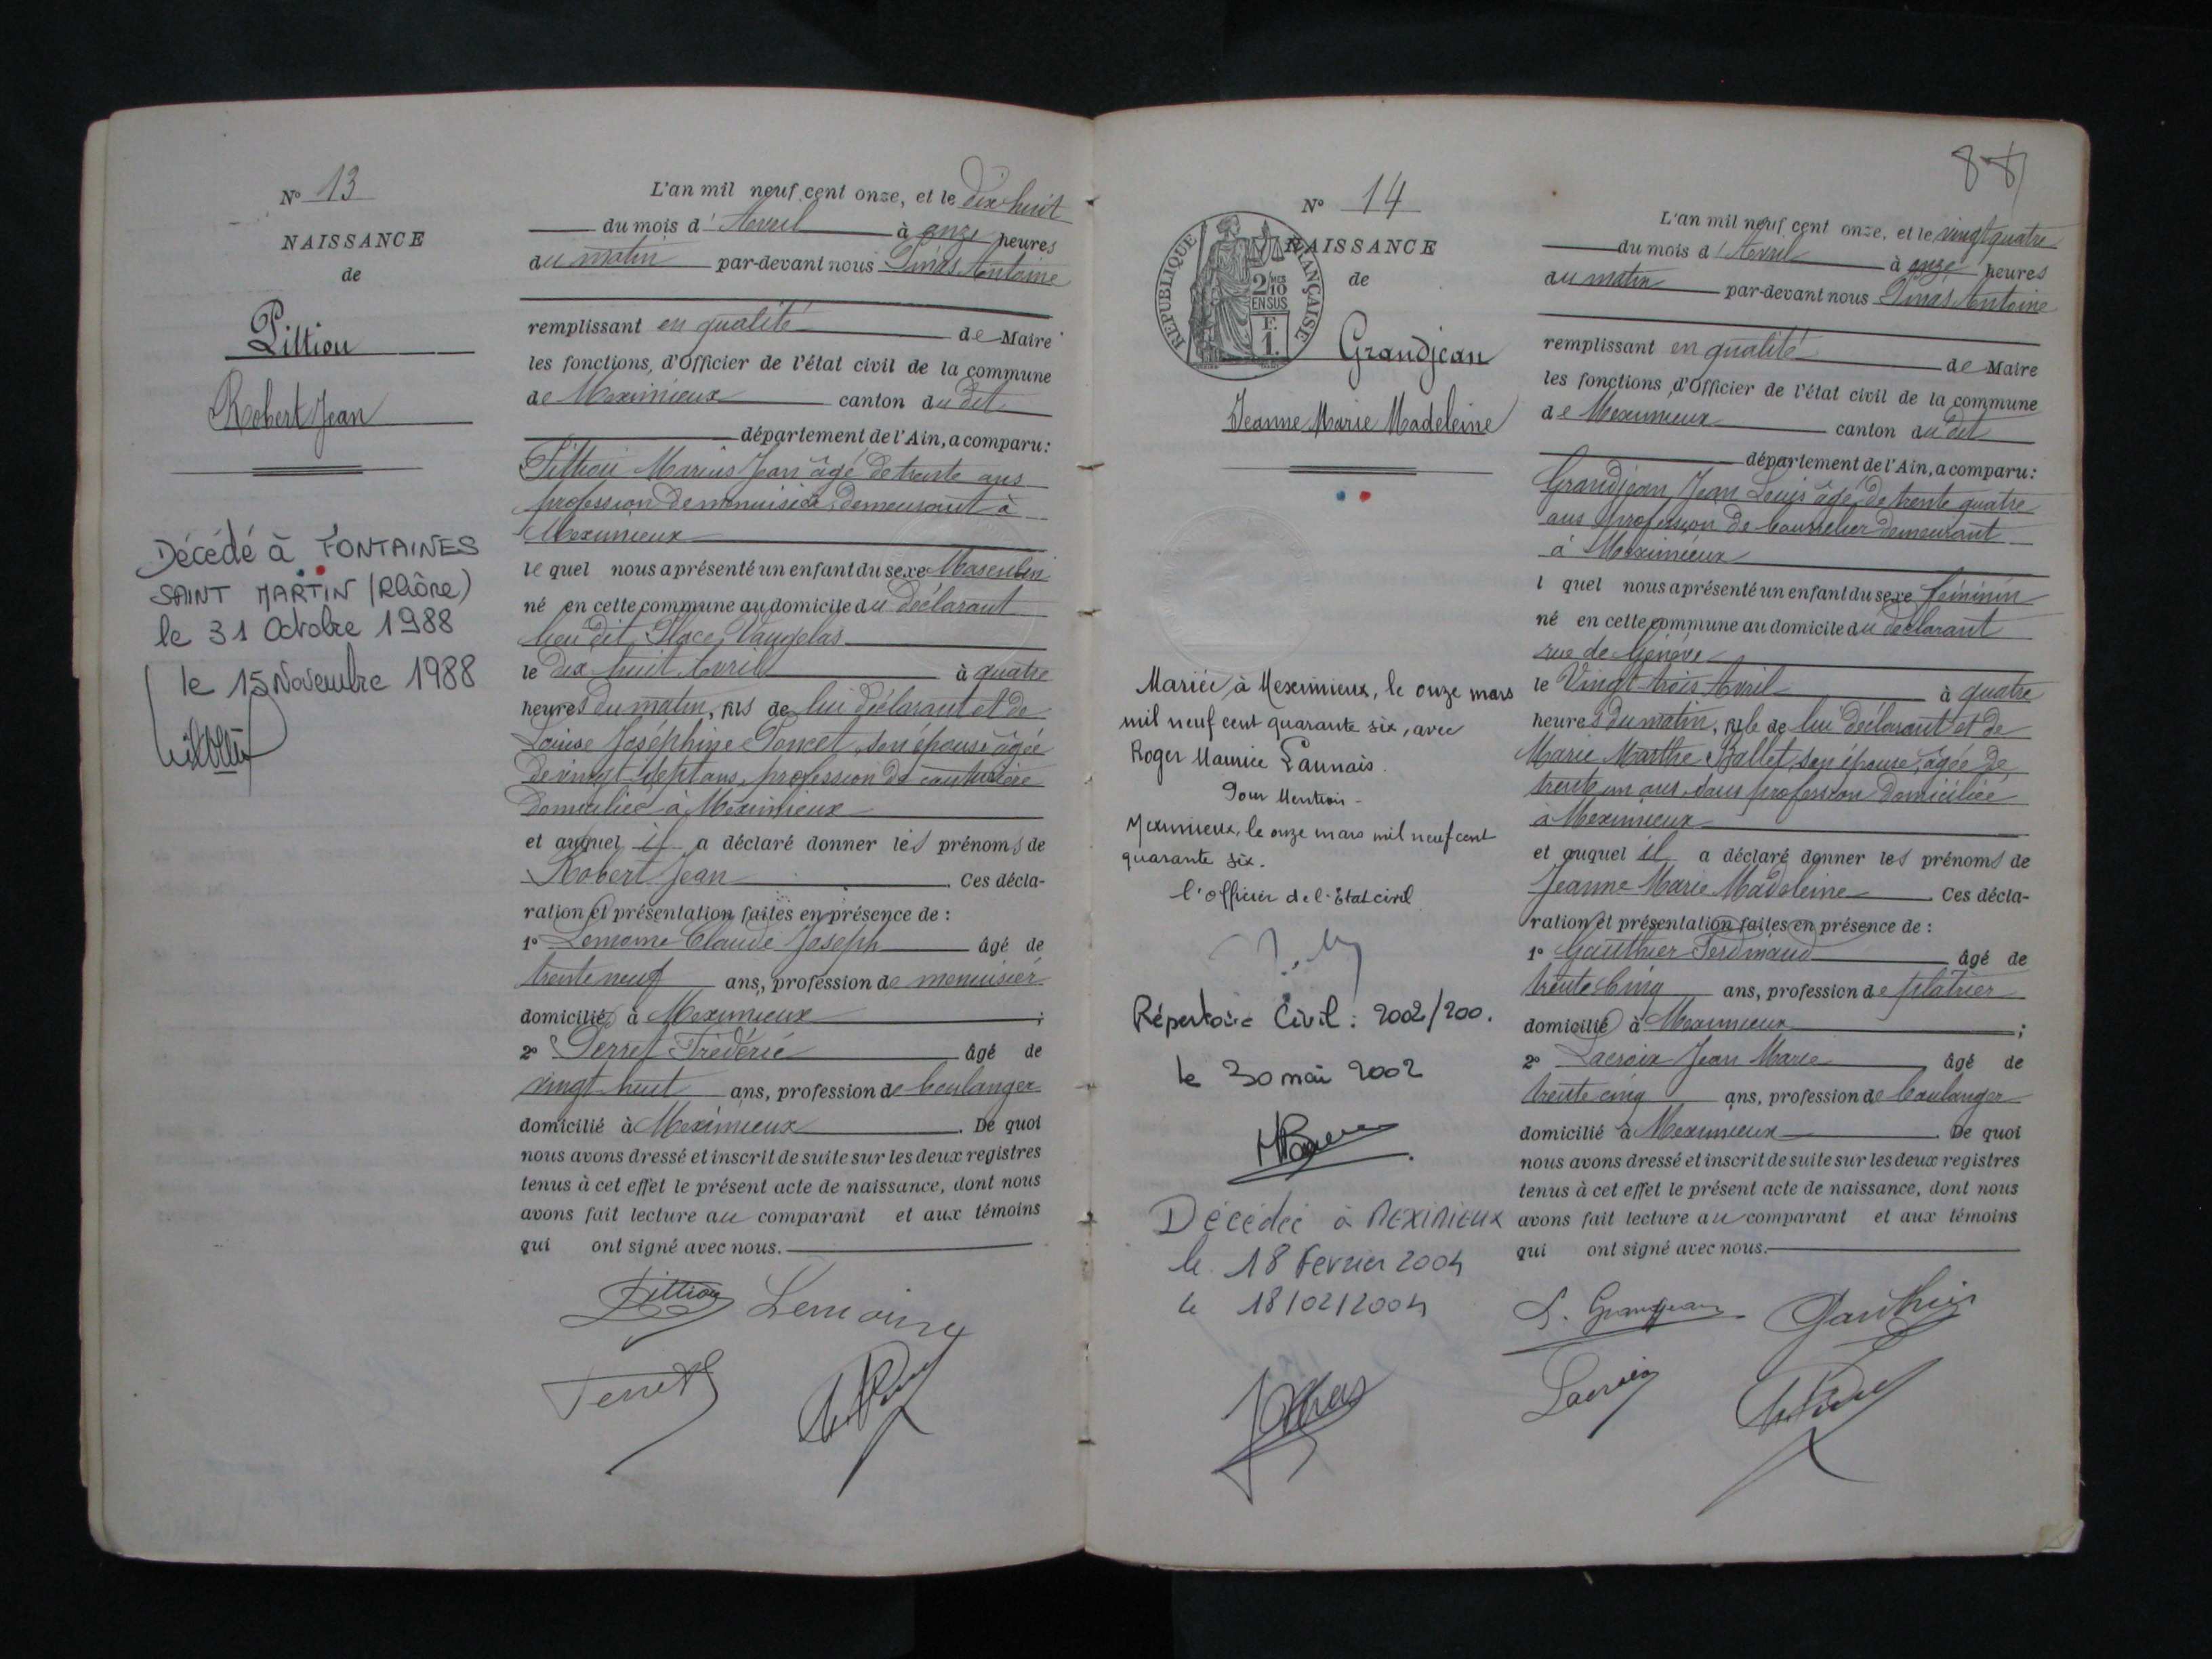 N° 13
NAISSANCE
de
Pittiou
Robert Jean
Décédé à FONTAINES
SAINT MARTIN (Rhône)
le 31 Octobre 1988
le 15 Novembre 1988
L'an mil neuf cent onze, et le dix huit
du mois d'Avril à onze heures
du matin par-devant nous Pinas Antoine
remplissant en qualité de Maire
les fonctions d'Officier de l'état civil de la commune
de Meximieux canton du dit
département de l'Ain, a comparu:
Pittiou Marius Jean âgé de trente ans
profession de menuisier demeurant à
Meximieux
le quel nous a présenté un enfant du sexe Masculin
né en cette commune au domicile du déclarant
lieu dit Place Vaugelas
le dix huit Avril à quatre
heures du matin, fils de lui déclarant et de
Louise Joséphine Poncet son épouse âgée
de vingt sept ans, profession de couturière
domiciliée à Meximieux
et auquel il a déclaré donner les prénoms de
Robert Jean. Ces décla-
ration et présentation faites en présence de :
1° Lemoine Claude Joseph âgé de
trente neuf ans, profession de menuisier
domicilié à Meximieux ;
2° Perret Frédéric âgé de
vingt huit ans, profession de boulanger
domicilié à Meximieux. De quoi
nous avons dressé et inscrit de suite sur les deux registres
tenus à cet effet le présent acte de naissance, dont nous
avons fait lecture au comparant et aux témoins
qui ont signé avec nous.
Pittiou Lemoine
Perret
88
N° 14
NAISSANCE
de
REPUBLIQUE FRANÇAISE
2/10
EN SUS
F.
1.
Grandjean
Jeanne Marie Madeleine
Mariée à Meximieux, le onze mars
mil neuf cent quarante six, avec
Roger Maurice Launais.
Pour Mention -
Meximieux, le onze mars mil neuf cent
quarante six.
l'officier de l'Etat civil
Répertoire Civil : 2002/200.
le 30 mai 2002
Décédée à MEXIMIEUX
le 18 Février 2004
le 18/02/2004
L'an mil neuf cent onze, et le vingt quatre
du mois d'Avril à onze heures
du matin par-devant nous Pinas Antoine
remplissant en qualité de Maire
les fonctions d'Officier de l'état civil de la commune
de Meximieux canton du dit
département de l'Ain, a comparu:
Grandjean Jean Louis âgé de trente quatre
ans profession de bourrelier demeurant
à Meximieux
l quel nous a présenté un enfant du sexe féminin
né en cette commune au domicile du déclarant
rue de Genève
le Vingt trois Avril à quatre
heures du matin, fille de lui déclarant et de
Marie Marthe Ballet son épouse, âgée de
trente un ans sans profession domiciliée
à Meximieux
et auquel il a déclaré donner les prénoms de
Jeanne Marie Madeleine. Ces décla-
ration et présentation faites en présence de :
1° Gauthier Ferdinand âgé de
trente cinq ans, profession de plâtrier
domicilié à Meximieux ;
2° Lacroix Jean Marie âgé de
trente cinq ans, profession de boulanger
domicilié à Meximieux. De quoi
nous avons dressé et inscrit de suite sur les deux registres
tenus à cet effet le présent acte de naissance, dont nous
avons fait lecture au comparant et aux témoins
qui ont signé avec nous.
L. Grandjean Gauthier
Lacroix